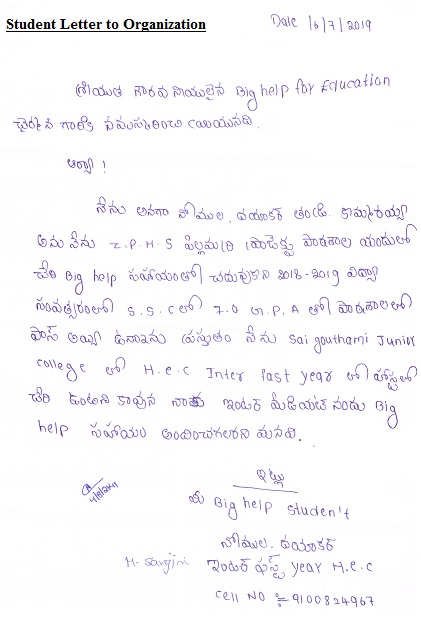 Student Letter to Organization
Date 16/7/2019
శ్రీయుత గౌరవనీయులైన Big help for Education
చైర్మన్ గారికి నమస్కరించి వ్రాయునది.
ఆర్యా!
నేను అనగా నోముల. దయాకర్ తండ్రి. కొమురయ్య
అను నేను Z.P.H.S పిల్లమర్రి ప్రాజెక్టు పాఠశాల యందులో
చేరి Big help సహాయంతో చదువుకుని 2018-2019 విద్యా
సంవత్సరంలో S.S.C లో 7.0 G.P.A తో పాఠశాలలో
పాస్ అయ్యి ఉన్నాను ప్రస్తుతం నేను Sai gouthami Junior
college లో H.e.c Inter fast year లో హాస్టల్లో
చేరి ఉంటుని కావున నాకు ఇంటర్ మీడియట్ నందు Big
help సహాయం అందించగలరని మనవి.
ఇట్లు
మీ Big help student't
నోముల. దయాకర్
H. Sargini ఇంటర్ ఫస్ట్ year H.e.c
Cell NO := 9100824967